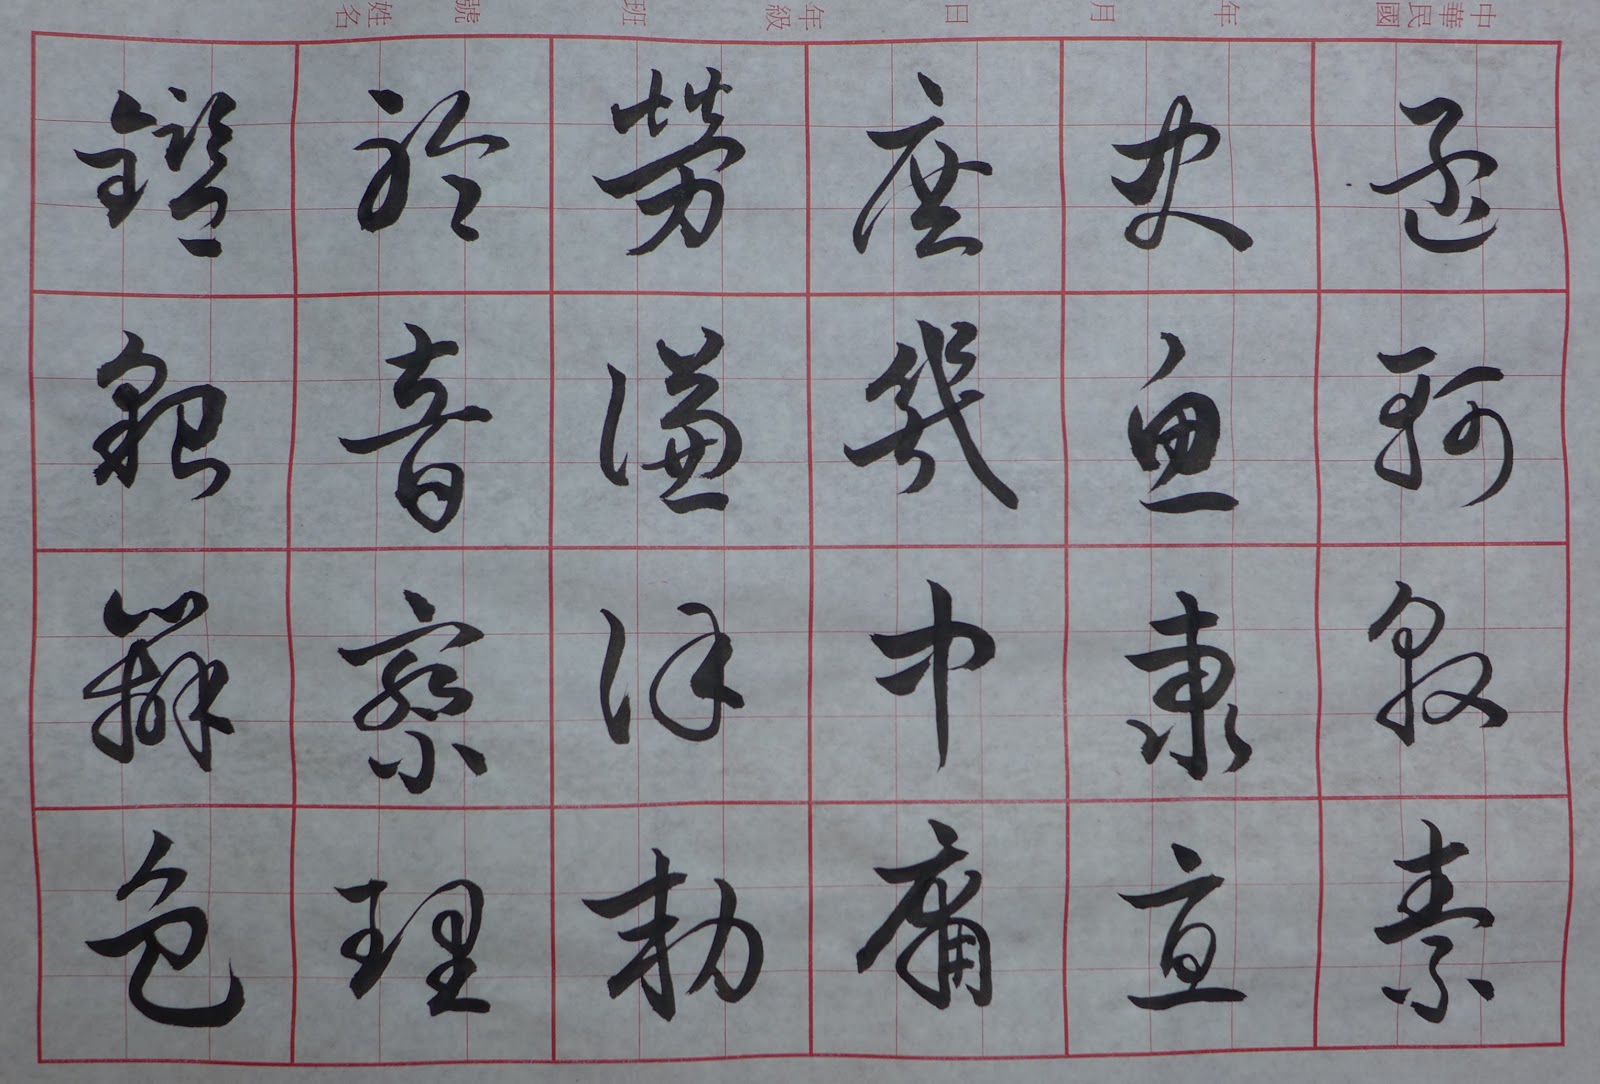 中華民國　年　月　日　年級　班　號　姓名
孟軻敦素
史魚秉直
庶幾中庸
勞謙謹勅
聆音察理
鑑貌辨色